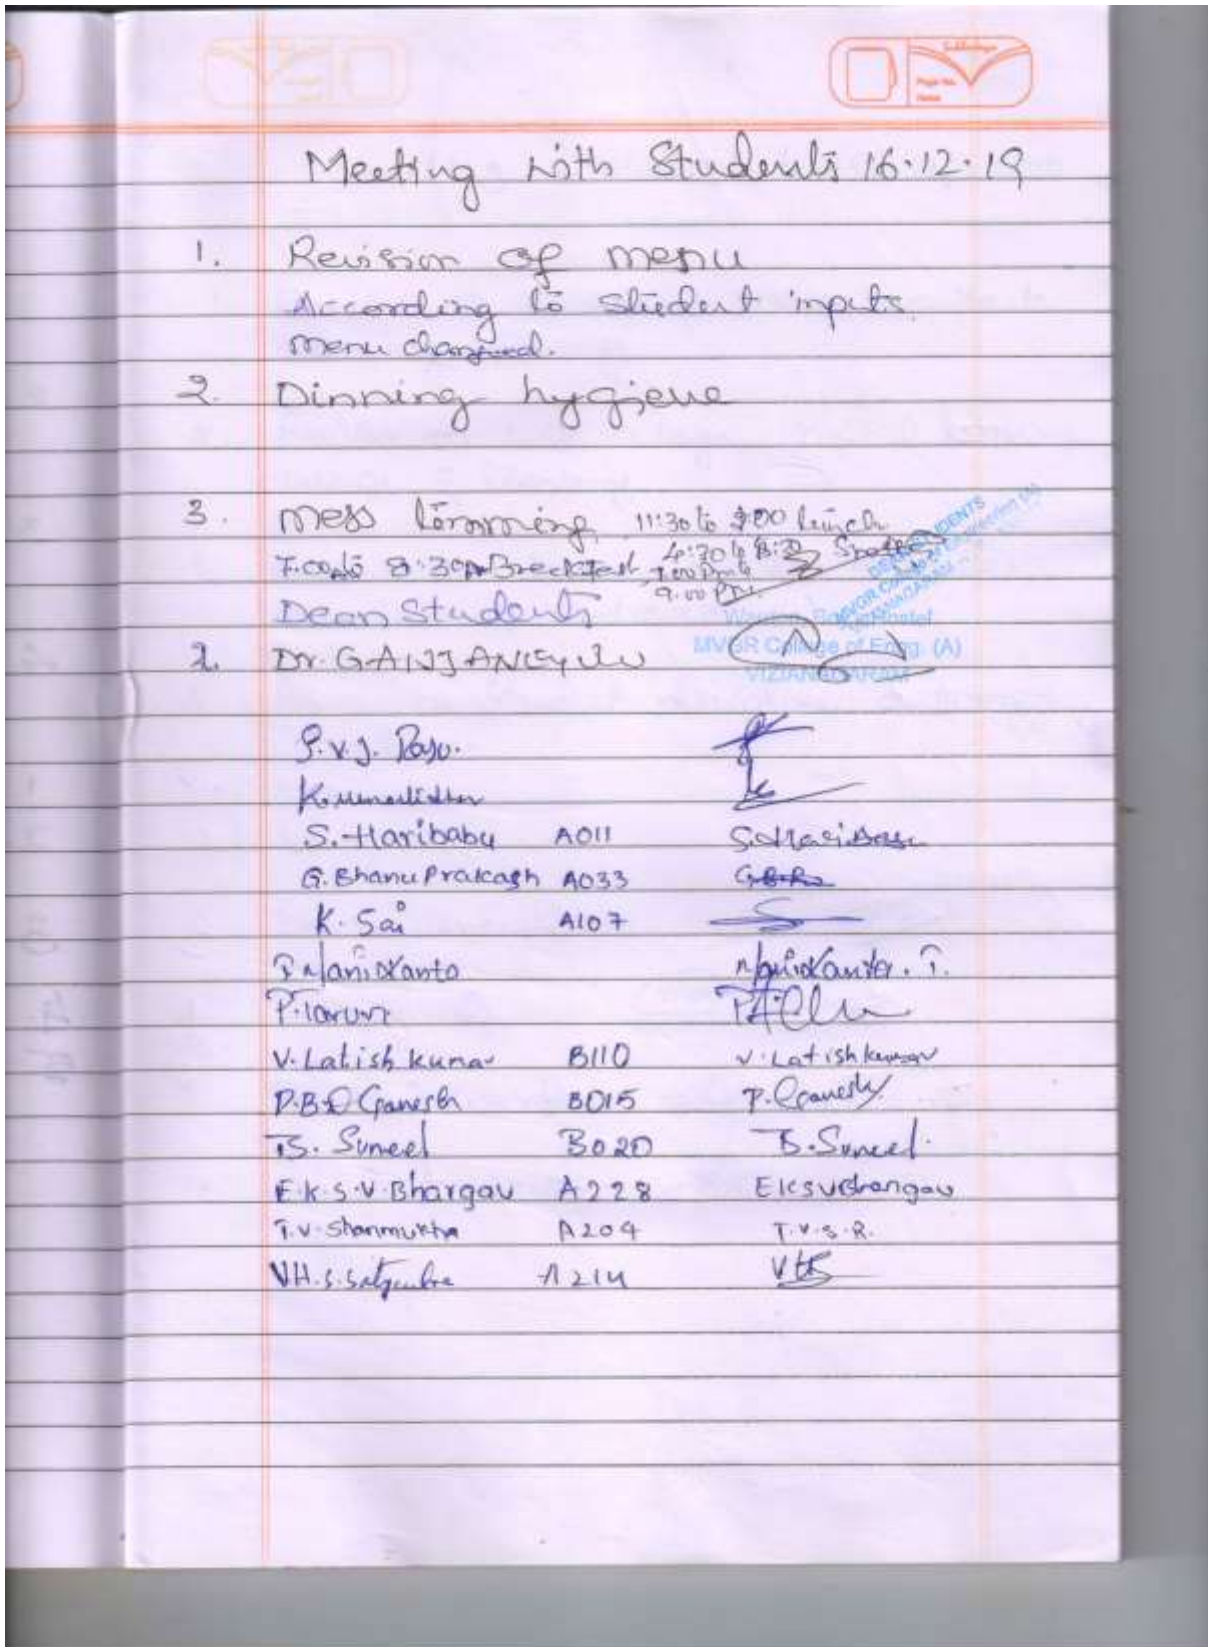 Meeting with Students 16.12.19
1. Revision of menu
According to student inputs
menu changed.
2. Dinning hygiene
3. mess timming 11:30 to 2:00 lunch
7.00 to 8:30 Breckfest 4:30 to
7.00 Pm to
9.00 Pm
Dean Students
DEAN STUDENTS
MVGR College of Engineering (A)
VIZIANAGARAM
2. Dr. GANJANEYULU
Warden Boys Hostel
MVGR College of Engg. (A)
VIZIANAGARAM
P.V.J. Raju.
K. Muralidhar
S. Haribabu A011 S. Hari Babu
G. Bhanu Prakash A033 G.B.P
K. Sai A107
T. Manikanta Manikanta. T.
P. Tarun
V. Latish kumar B110 V. Latish kumar
P.B.D Ganesh B015 P. Ganesh
B. Suneel B020 B. Suneel.
E.K.S.V. Bhargav A228 EKSVBhargav
T.V. Shanmukha A204 T.V.S.R.
V.H.S. A214 VHS